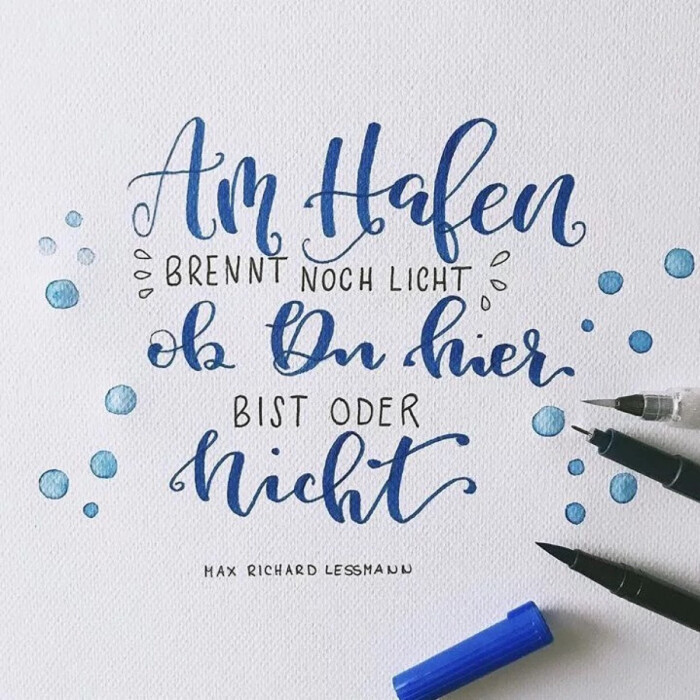 Am Hafen
BRENNT NOCH LICHT
ob Du hier
BIST ODER
nicht
MAX RICHARD LESSMANN